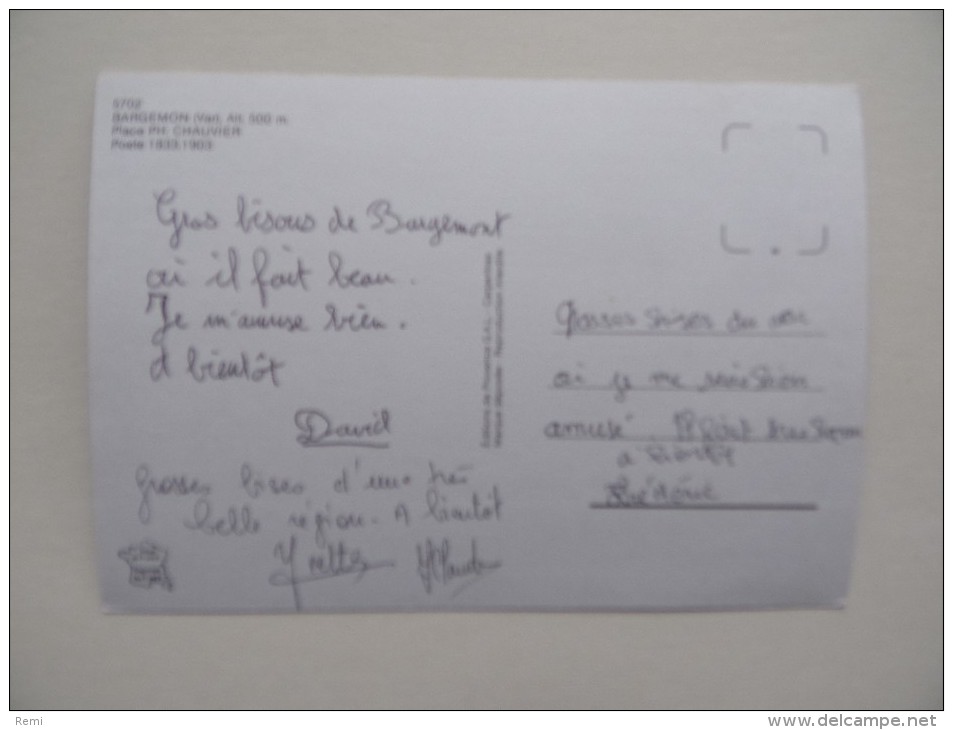 5702
BARGEMON (Var). Alt. 500 m.
Place PH. CHAUVIER
Poète 1833.1903
Gros bisous de Bargemont
où il fait beau.
Je m'amuse bien.
A bientôt
David
Grosses bises d'une très
belle région. A bientôt
Yvette
Editions de Provence S.A.R.L. - Carpentras
Marque déposée - Reproduction interdite
Grosses bises du
où je me suis bien
amusé. Il fait très
a bientôt
Frédéric
Remi
www.delcampe.net